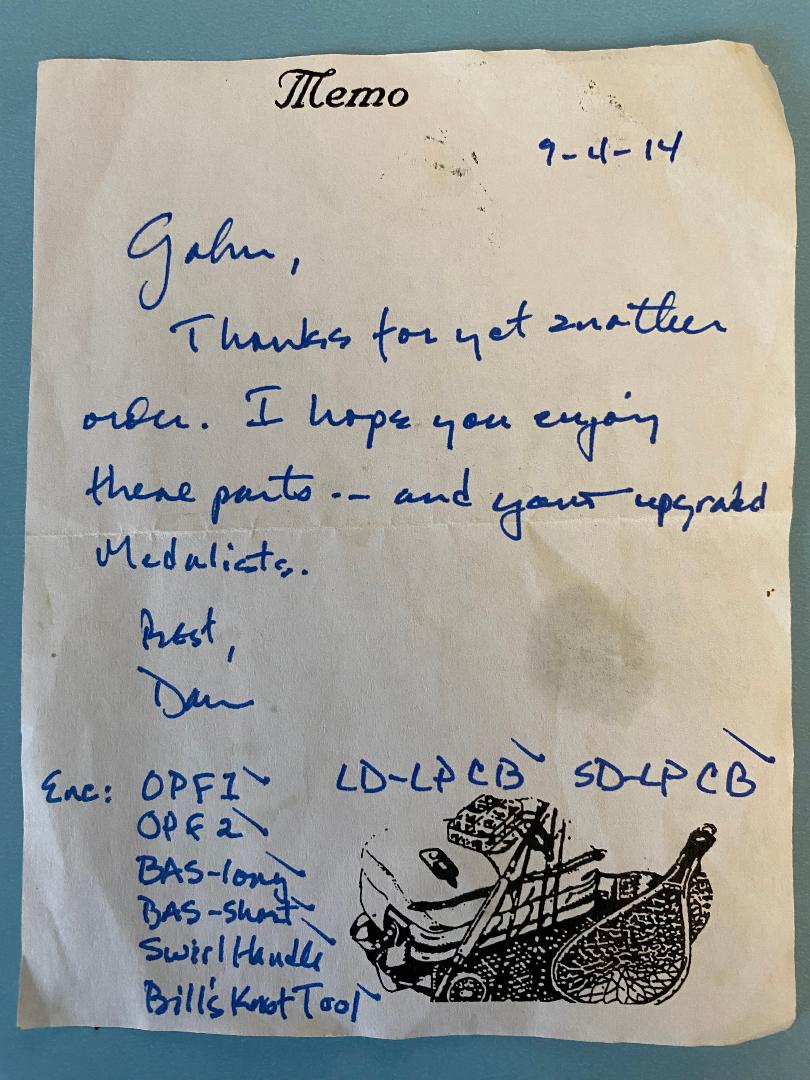 Memo
9-4-14
Gahn,
Thanks for yet another
order. I hope you enjoy
these parts -- and your upgraded
Medalists.
Best,
Dan
Enc: OPF1 LD-LPCB SD-LPCB
OPF2
BAS-long
BAS-short
Swirl Handle
Bill's Knot Tool